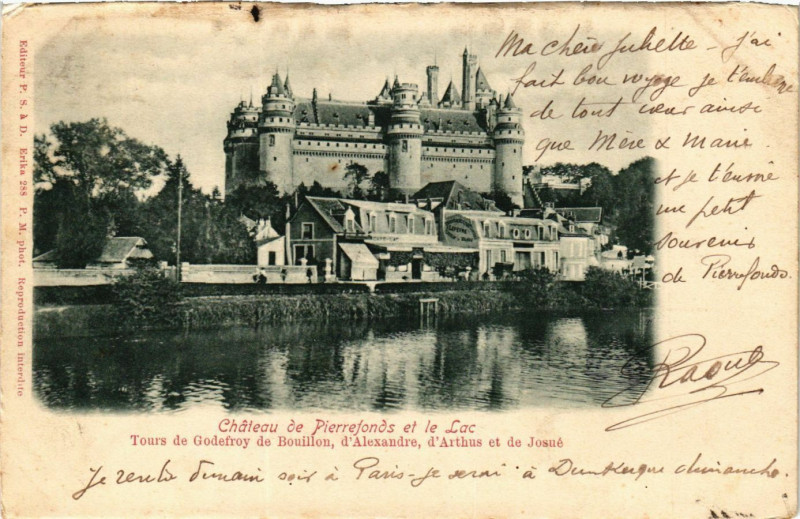 Editeur P. S. à D. Erika 288 P. M. phot. Reproduction interdite
Ma chère Juliette - j'ai
fait bon voyage je t'embrasse
de tout cœur ainsi
que Mère & Marie.
et je t'envoie
un petit
souvenir
de Pierrefonds.
Raoul
Château de Pierrefonds et le Lac
Tours de Godefroy de Bouillon, d'Alexandre, d'Arthus et de Josué
Je rentre demain soir à Paris - je serai à Dunkerque dimanche.